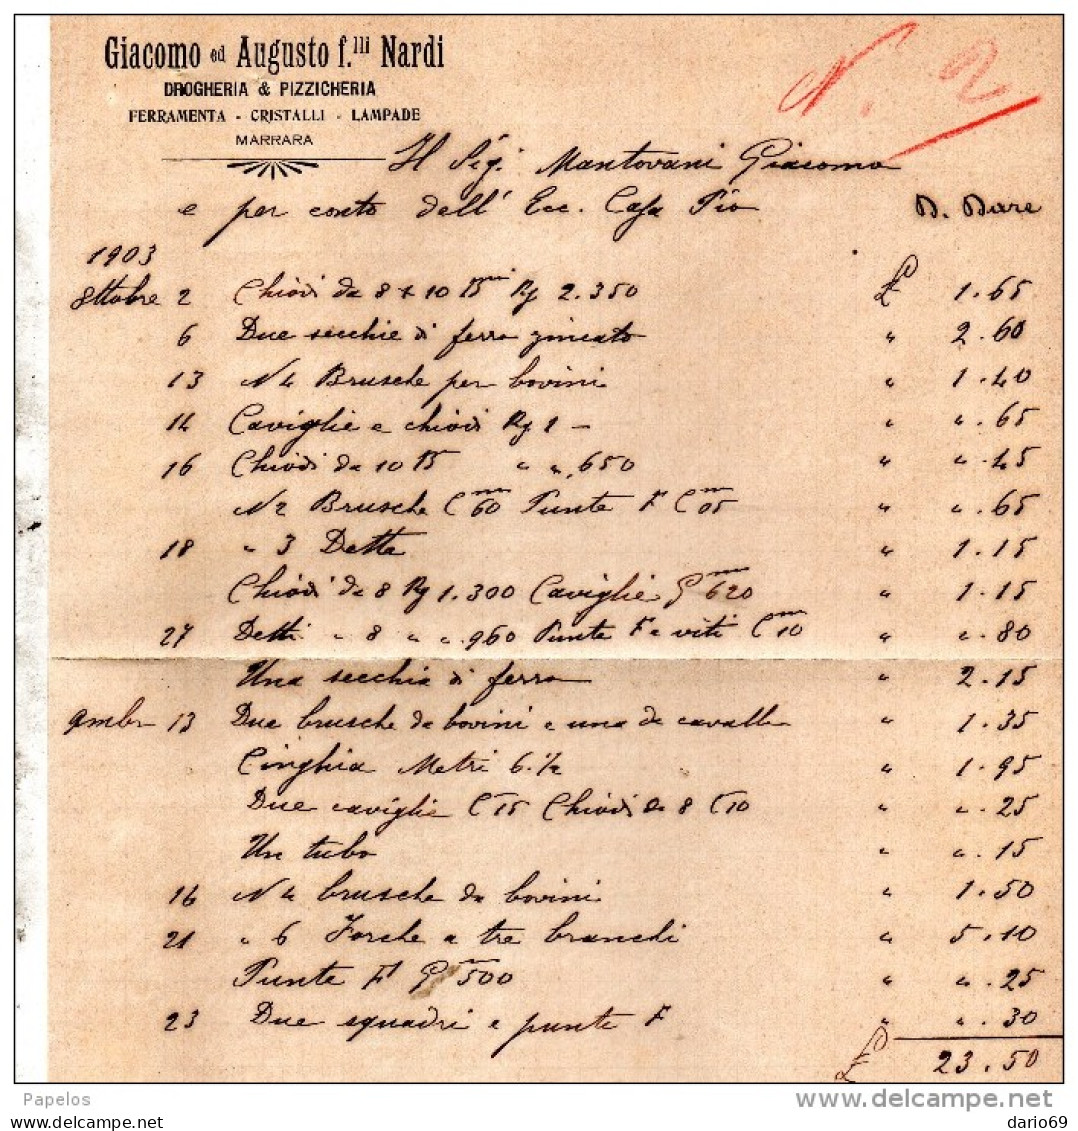 Giacomo ed Augusto f.lli Nardi
DROGHERIA & PIZZICHERIA
FERRAMENTA - CRISTALLI - LAMPADE
MARRARA
N. 2
Il Sig. Mantovani Giacomo
e per conto dell' Ecc. Casa Pio D. Dare
1903
Ottobre 2 Chiodi da 8 + 10 Kg 2.350 £ 1.65
6 Due secchie di ferro zincato " 2.60
13 N 4 Brusche per bovini " 1.40
14 Caviglie e chiodi Kg 1 — " ".65
16 Chiodi da 10 " ".650 " ".45
N 2 Brusche Cmi 60 Punte F Cmi 05 " ".65
18 " 3 Dette " 1.15
Chiodi da 8 Kg 1.300 Caviglie Gmi 620 " 1.15
27 Detti " 8 " ".960 Punte F e viti Cmi 10 " ".80
Una secchia di ferro " 2.15
9mbre 13 Due brusche da bovini e una da cavallo " 1.35
Cinghia Metri 6.1/2 " 1.95
Due caviglie C 15 Chiodi da 8 C 10 " ".25
Un tubo " ".15
16 N 4 brusche da bovini " 1.50
21 " 6 Forche a tre branchi " 5.10
Punte F Gmi 500 " ".25
23 Due squadri e punte F " ".30
£ 23.50
Papelos
www.delcampe.net
dario69